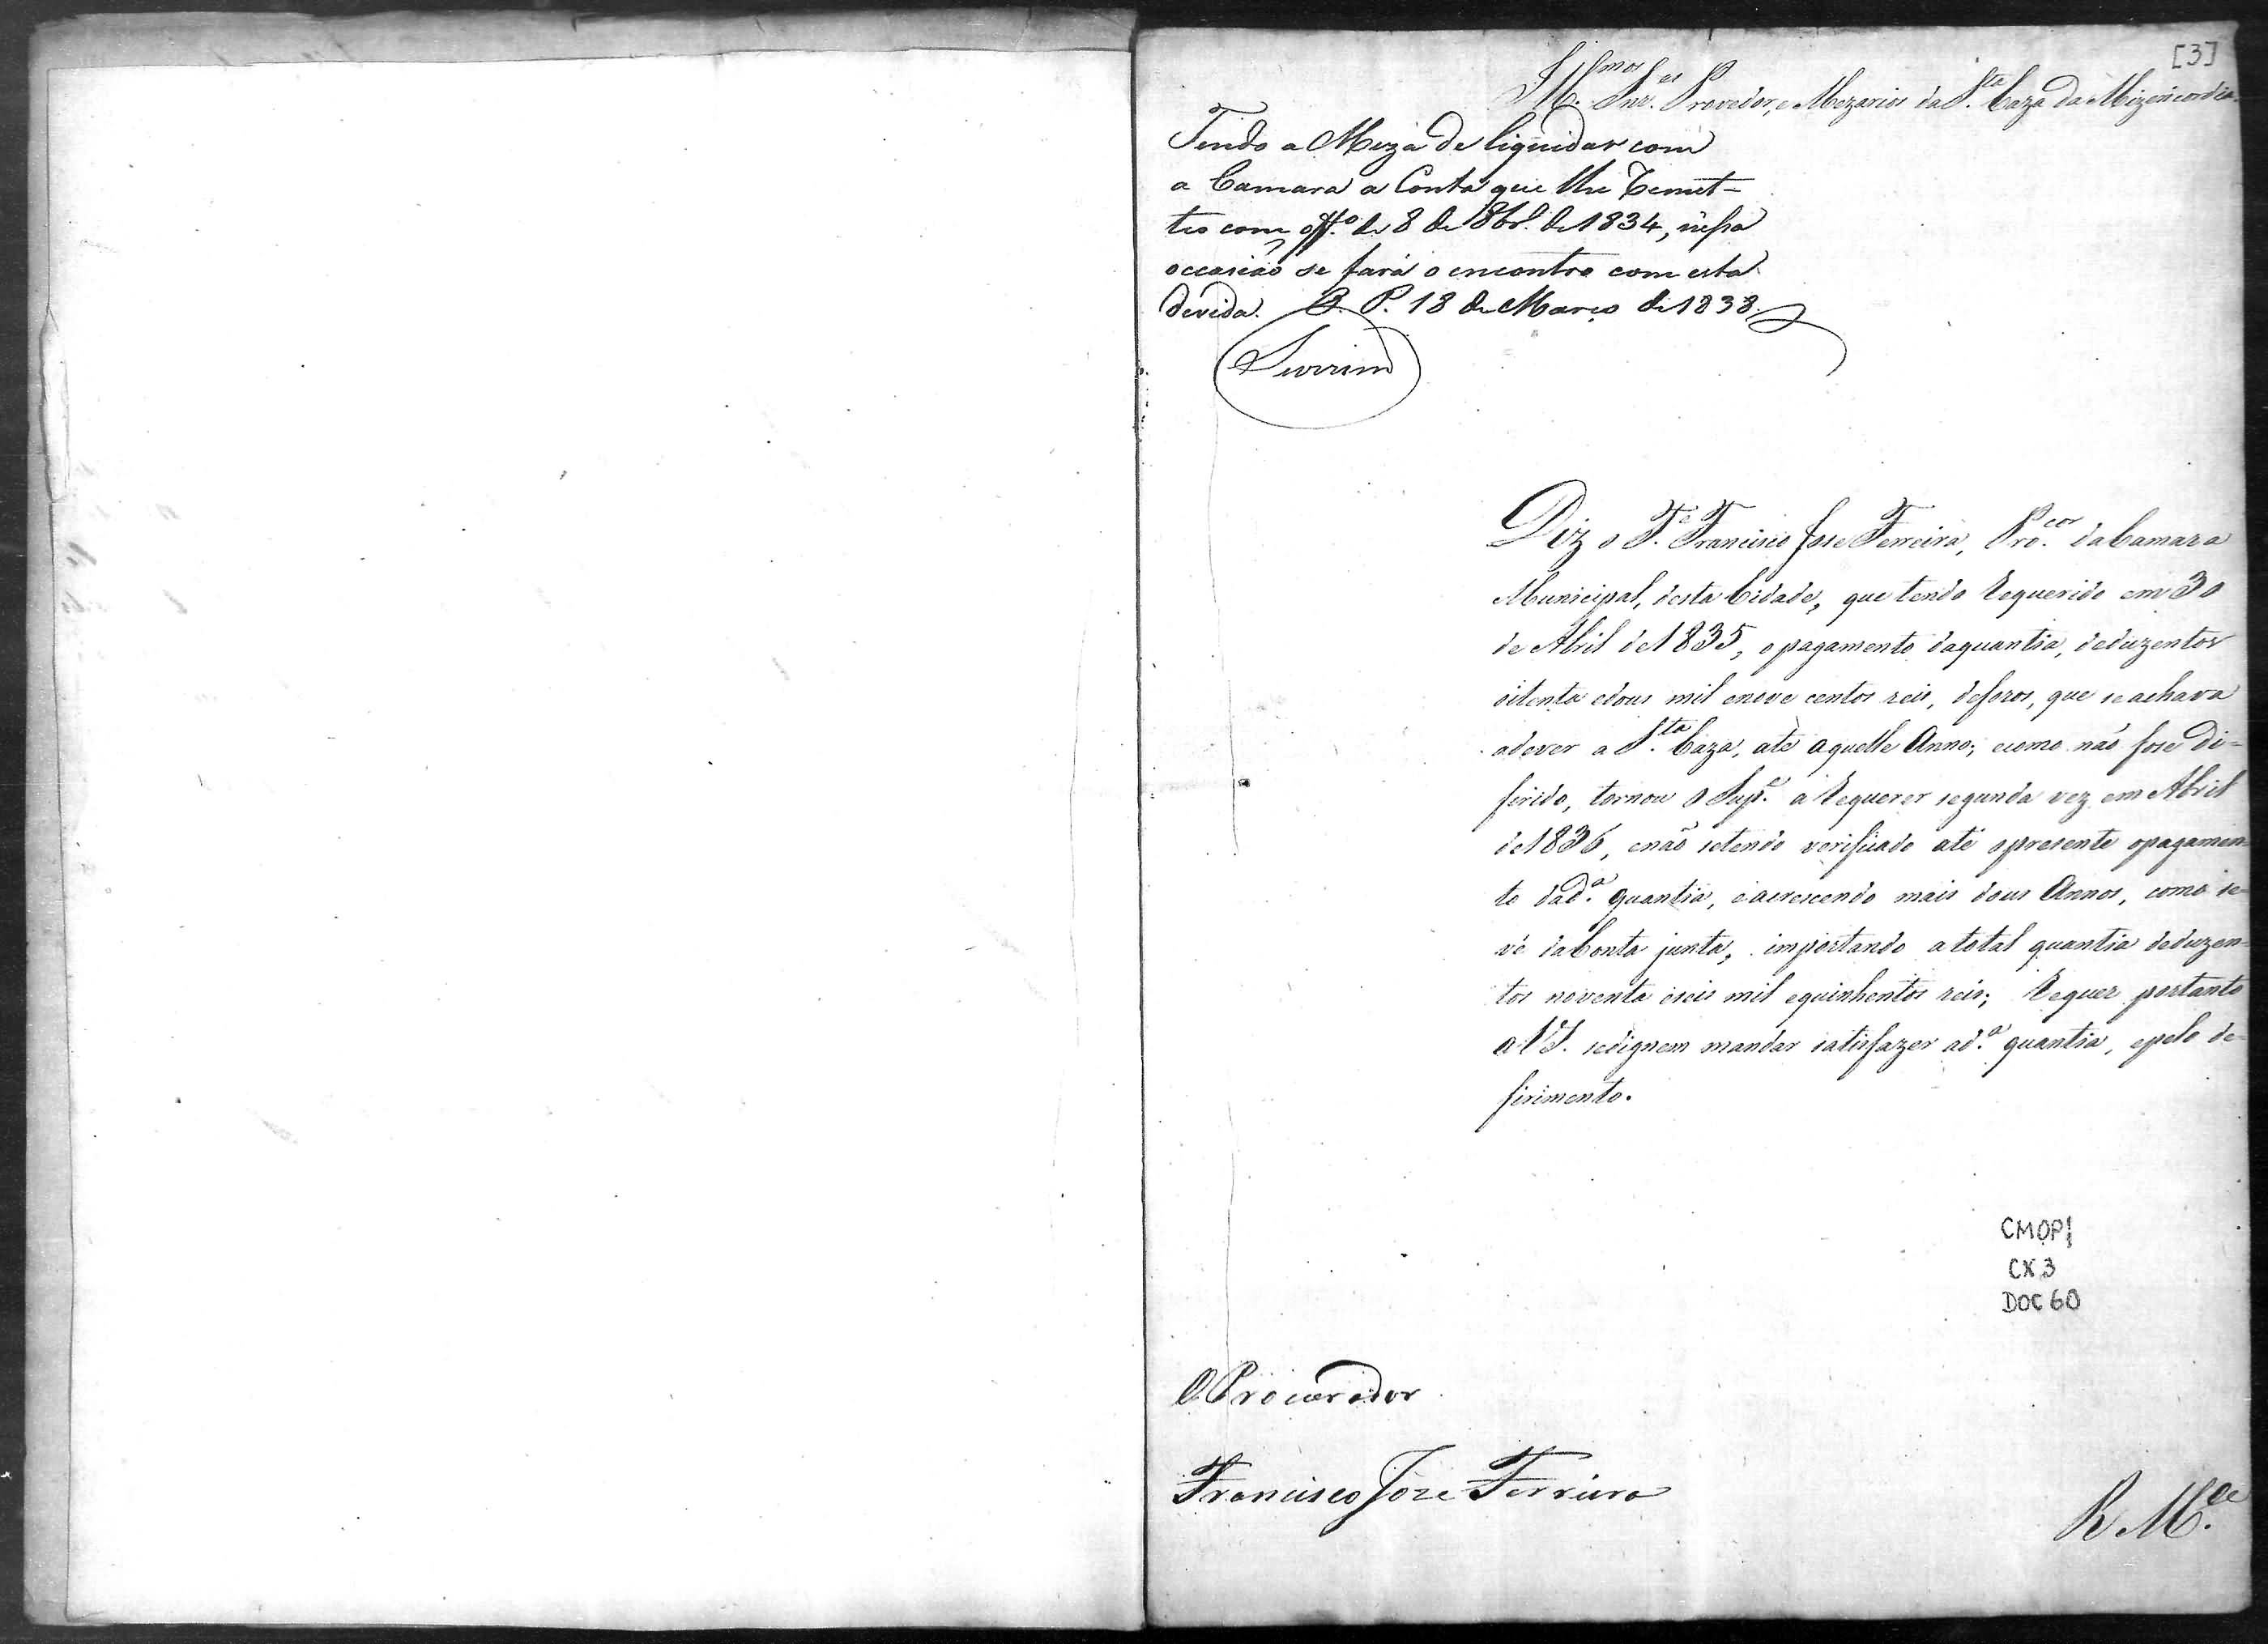 [3]
Ill.mos Snr.es Provedor, e Mezarios da S.ta Caza da Mizericordia.
Tendo a Meza de liquidar com
a Camara a Conta que lhe remet-
teo com off.o de 8 de 8br.o de 1834, nessa
occasião se fará o encontro com esta
devida. O. P. 18 de Março de 1838.
Diz o T.e Francisco Jose Ferreira, Pro.cor da Camara
Municipal, desta Cidade, que tendo requerido em 30
de Abril de 1835, o pagamento daquantia, deduzentos
oitenta edous mil enove centos reis, deforos, que se achava
adever a S.ta Caza, até aquelle Anno; ecomo não fose di=
ferido, tornou o Sup.e a requerer segunda vez em Abril
de 1836, enão setendo verificado até opresente opagamen=
to dad.a quantia, eacrescendo mais dous Annos, como se=
vê daConta junta, importando atotal quantia deduzen=
tos noventa eseis mil equinhentos reis; requer portanto
a V.S. sedignem mandar satisfazer ad.a quantia, epelo de=
firimento.
CMOP
CX 3
DOC 60
O Procurador
Francisco Joze Ferreira
R M.ce